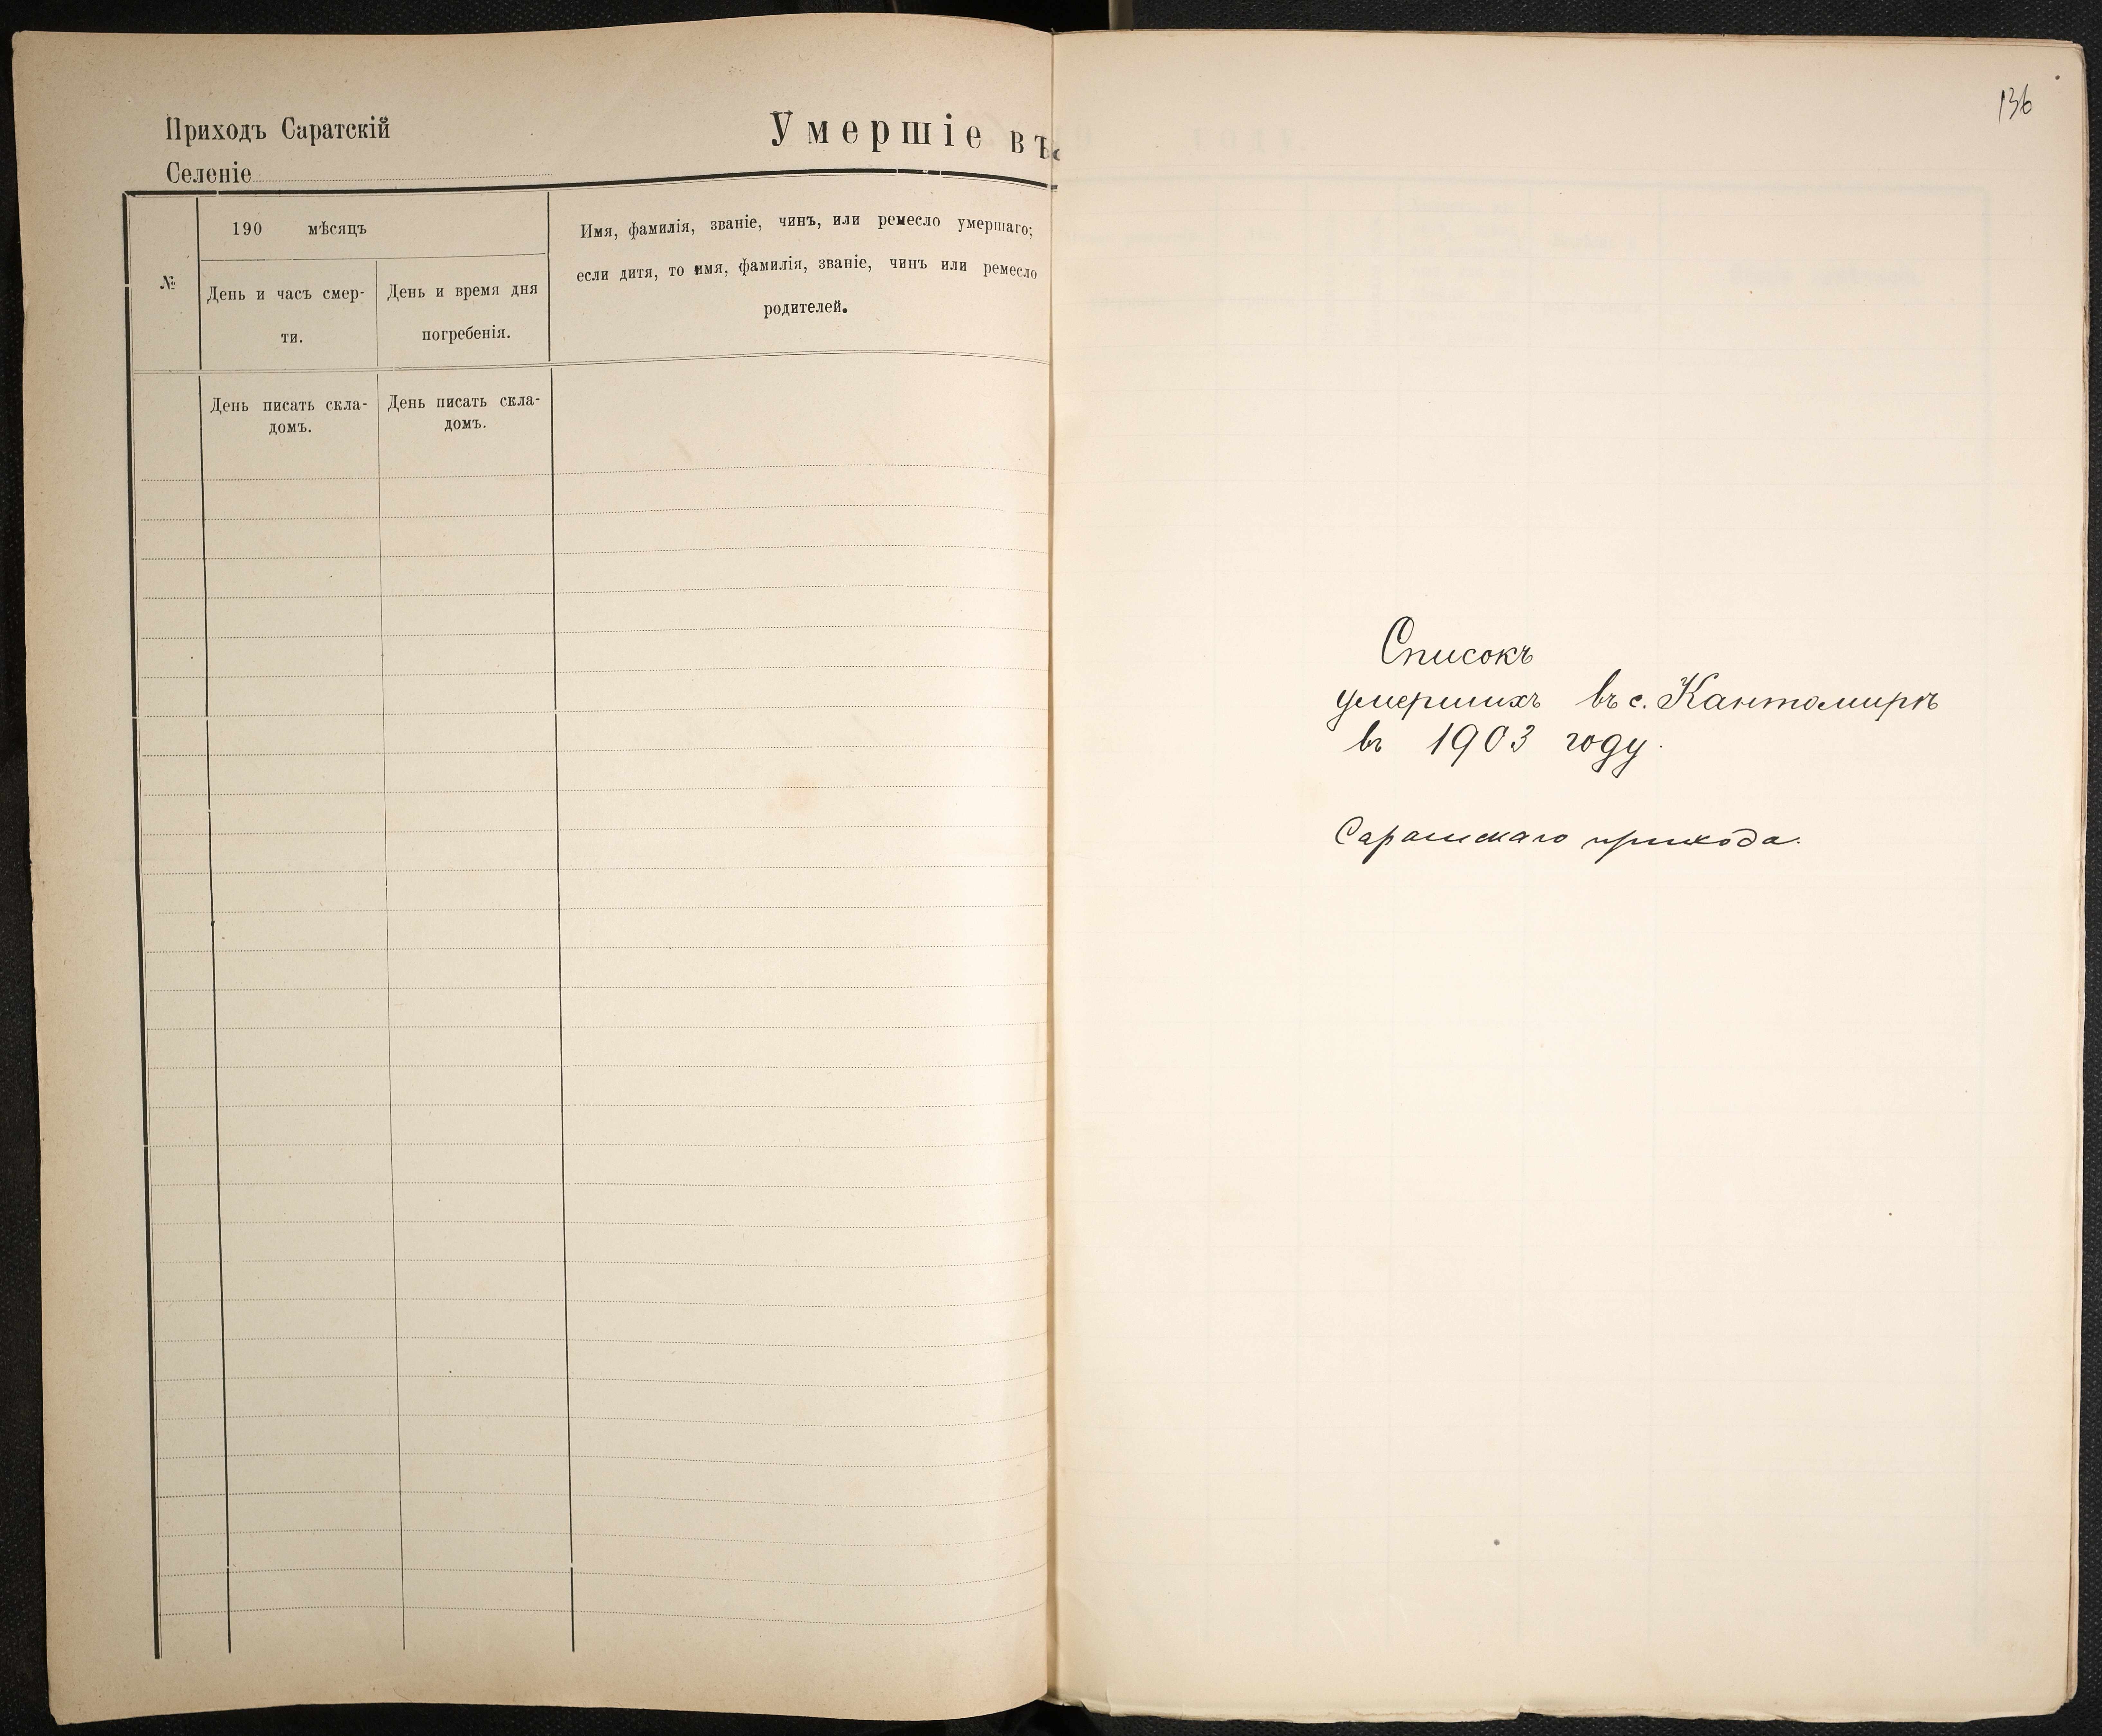 Приходъ Саратскій
Селеніе
Умершіе въ
№
190 мѣсяцъ
День и часъ смер-
ти.
День и время дня
погребенія.
Имя, фамилія, званіе, чинъ, или ремесло умершаго;
если дитя, то имя, фамилія, званіе, чинъ или ремесло
родителей.
День писать скла-
домъ.
День писать скла-
домъ.
136
Списокъ
умершихъ въ с. Кантомирѣ
въ 1903 году.
Саратскаго прихода.